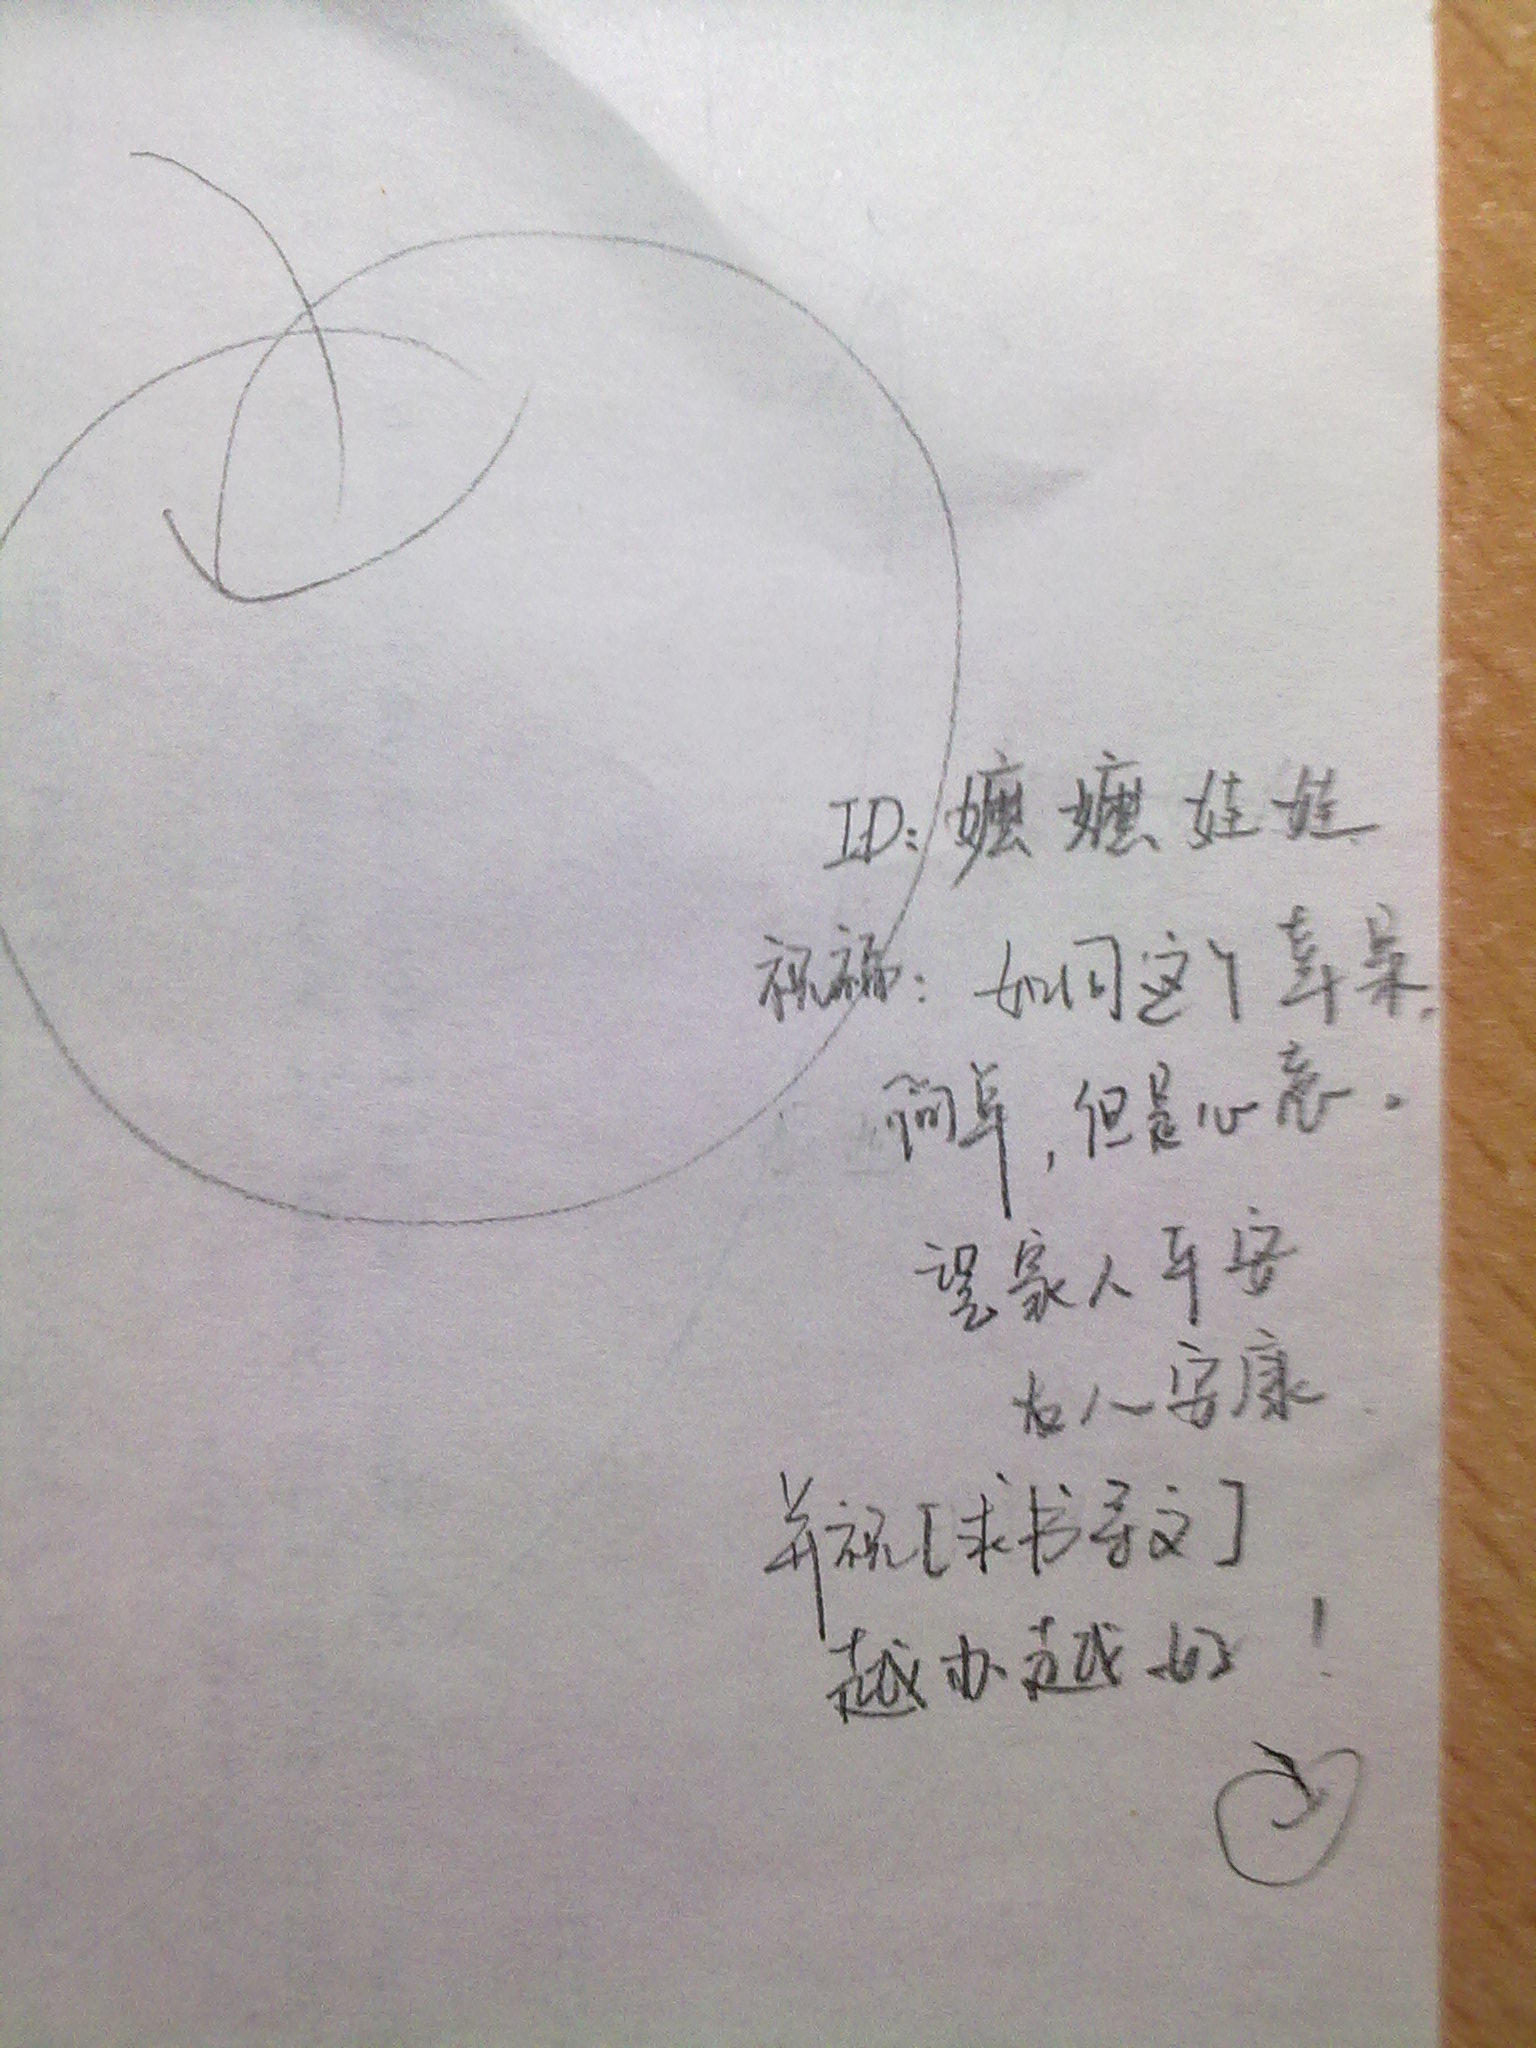 ID:嬷嬷娃娃
祝福:如同这个苹果,
简单,但是心意。
望家人平安
友人安康
并祝[求书寻文]
越办越好!